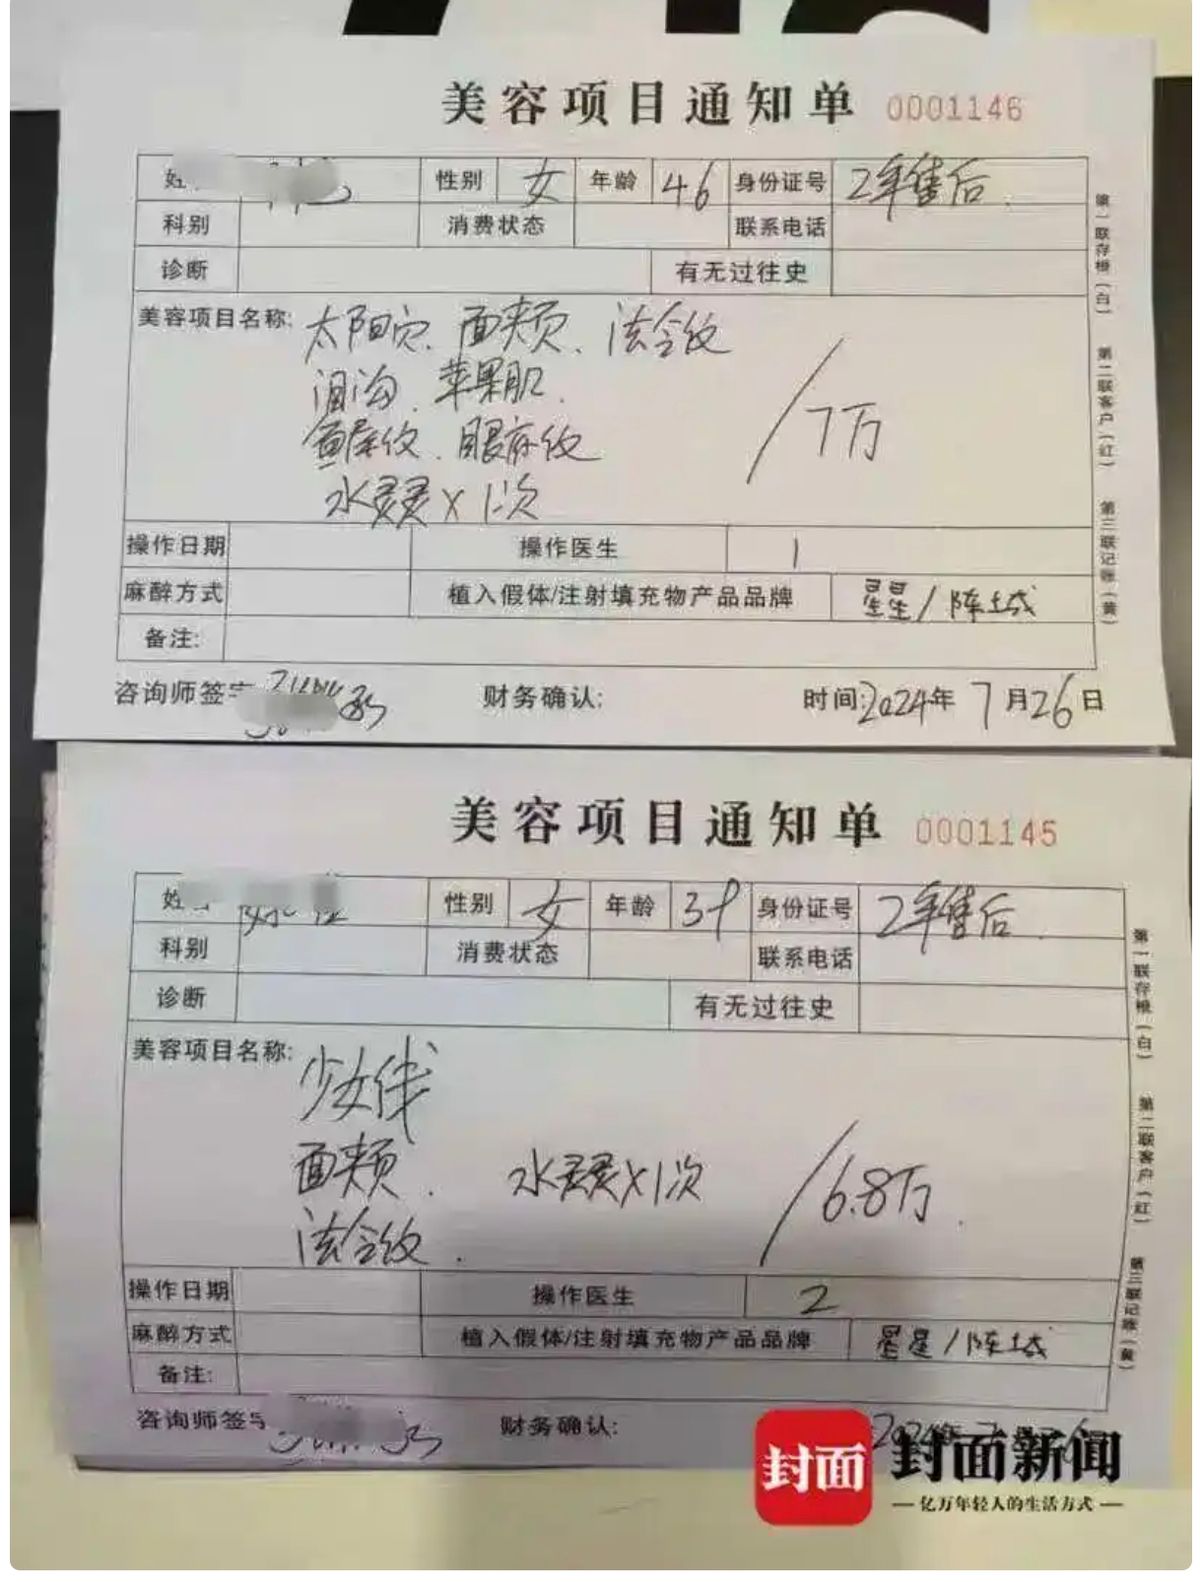 美容项目通知单 0001146
姓 性别 女 年龄 46 身份证号 2年售后
科别 消费状态 联系电话
诊断 有无过往史
美容项目名称: 太阳穴、面夹页、法令纹
泪沟、苹果肌、
鱼尾纹、眼底纹
水灵灵×1次
/7万
操作日期 操作医生 1
麻醉方式 植入假体/注射填充物产品品牌 星星/陈士成
备注:
咨询师签字 财务确认: 时间:2024年7月26日
第一联存根(白) 第二联客户(红) 第三联记账(黄)
美容项目通知单 0001145
姓 性别 女 年龄 39 身份证号 2年售后
科别 消费状态 联系电话
诊断 有无过往史
美容项目名称: 少女线
面夹页、 水灵灵×1次 /6.8万
法令纹、
操作日期 操作医生 2
麻醉方式 植入假体/注射填充物产品品牌 星星/陈士成
备注:
咨询师签字 财务确认: 2024年7月26
第一联存根(白) 第二联客户(红) 第三联记账(黄)
封面 封面新闻
—亿万年轻人的生活方式—